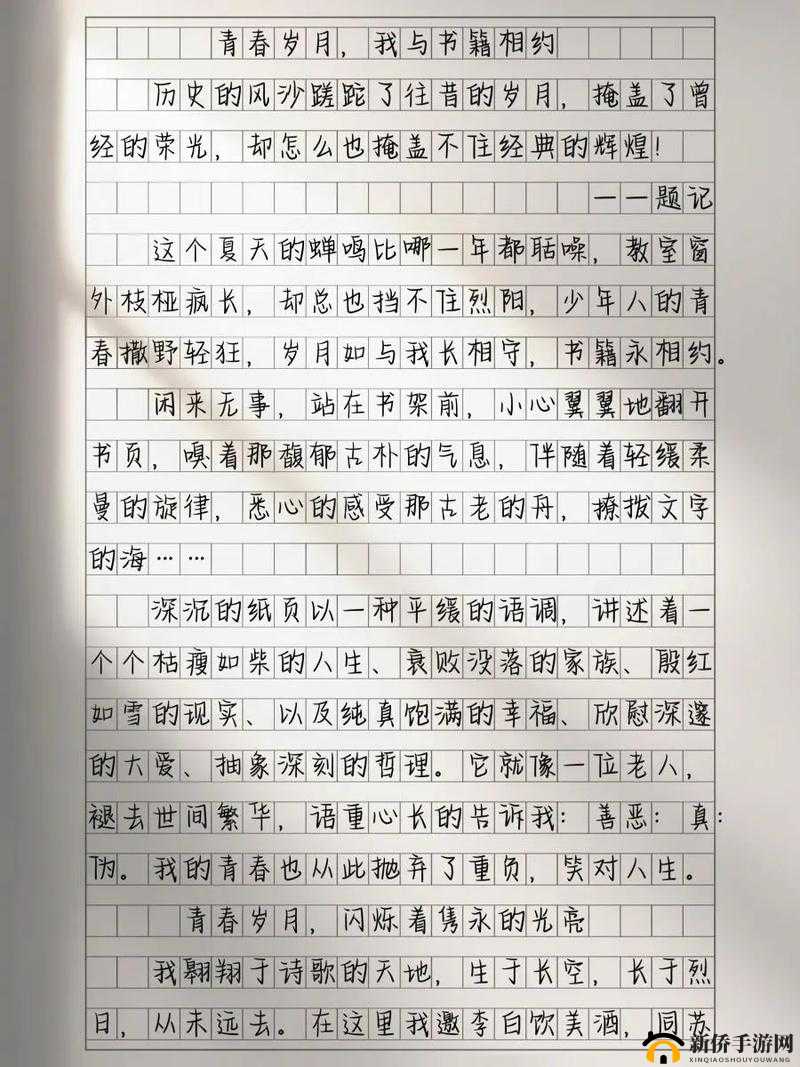 青春岁月，我与书籍相约
历史的风沙蹉跎了往昔的岁月，掩盖了曾
经的荣光，却怎么也掩盖不住经典的辉煌！
——题记
这个夏天的蝉鸣比哪一年都聒噪，教室窗
外枝桠疯长，却总也挡不住烈阳，少年人的青
春撒野轻狂，岁月如与我长相守，书籍永相约。
闲来无事，站在书架前，小心翼翼地翻开
书页，嗅着那馥郁古朴的气息，伴随着轻缓柔
曼的旋律，悉心的感受那古老的舟，撩拨文字
的海……
深沉的纸页以一种平缓的语调，讲述着一
个个枯瘦如柴的人生、衰败没落的家族、殷红
如雪的现实、以及纯真饱满的幸福、欣慰深邃
的大爱、抽象深刻的哲理。它就像一位老人，
褪去世间繁华，语重心长的告诉我：善恶：真：
伪。我的青春也从此抛弃了重负，笑对人生。
青春岁月，闪烁着隽永的光亮
我翱翔于诗歌的天地，生于长空，长于烈
日，从未远去。在这里我邀李白饮美酒，同苏
新侨手游网
XINQIAOSHOUYOUWANG